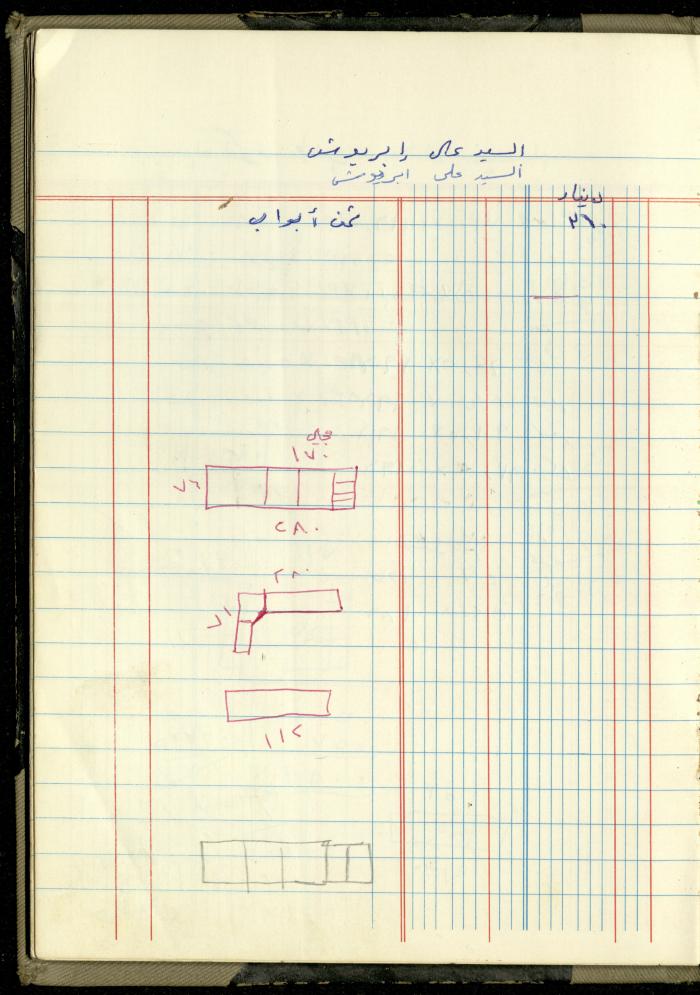 السيد على ابريوش
السيد على ابريوش
دينار
ثمن أبواب
٣٦٠
مجلى
١٧٠
٧٦
٢٨٠
٢٨٠
٧١
١١٢